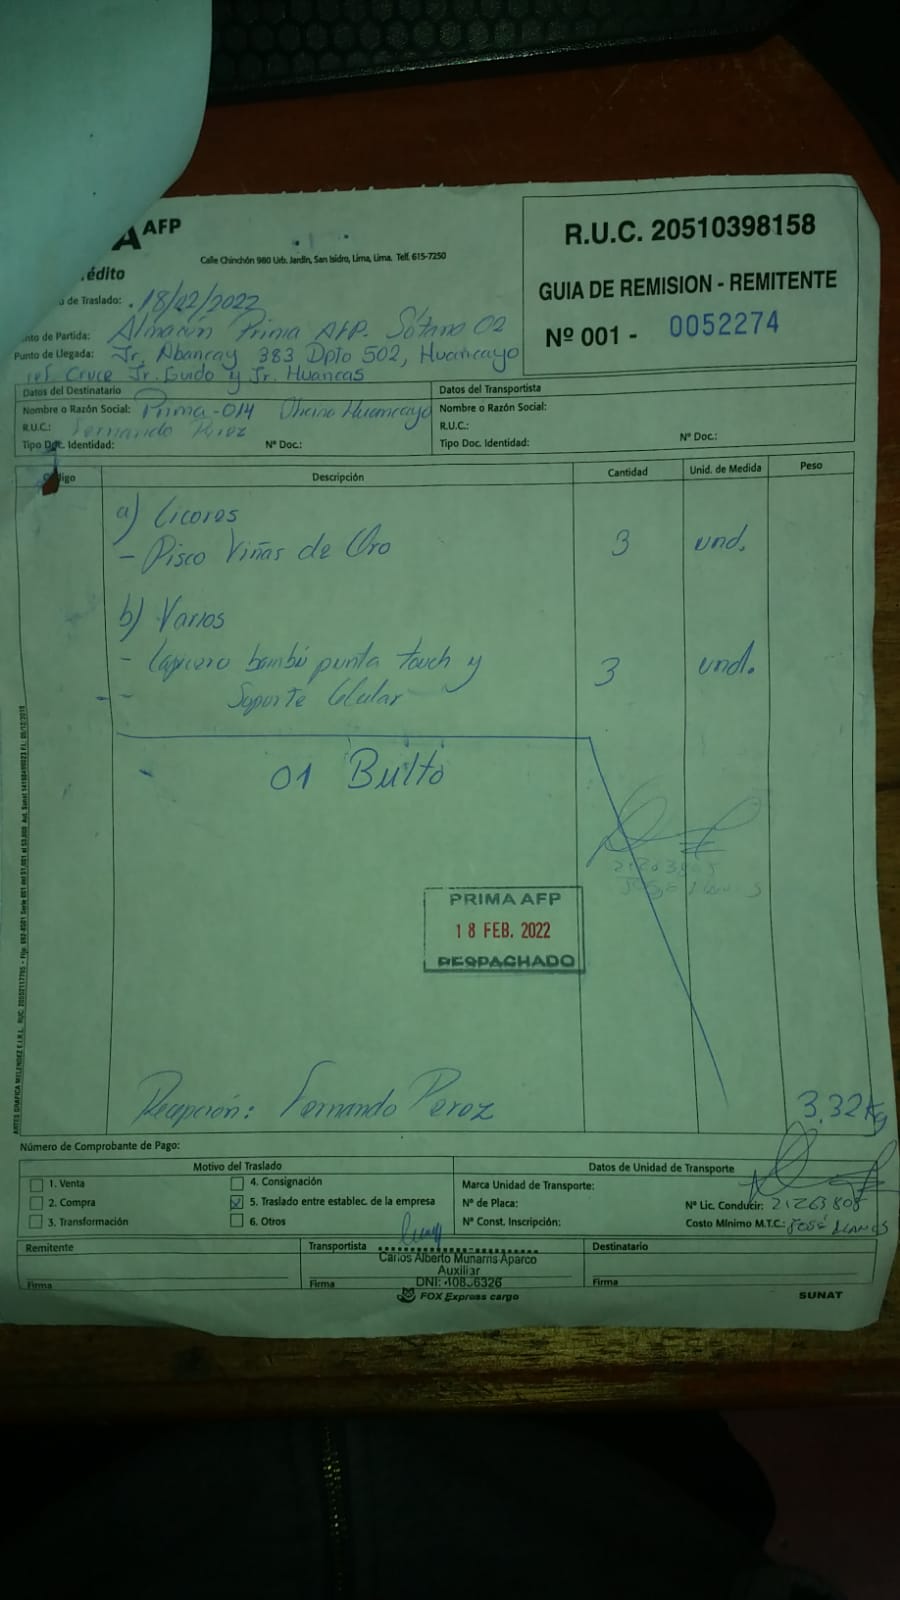 A AFP
édito
Calle Chinchón 980 Urb. Jardín, San Isidro, Lima, Lima. Telf. 615-7250
R.U.C. 20510398158
GUIA DE REMISION - REMITENTE
Nº 001 - 0052274
de Traslado: 18/02/2022
nto de Partida: Almacén Prima AFP. Sótano 02
Punto de Llegada: Jr. Abancay 383 Dpto 502, Huancayo
ref Cruce Jr. Guido y Jr. Huancas
Datos del Destinatario
Nombre o Razón Social: Prima-014 Oficina Huancayo
R.U.C.: Fernando Perez
Tipo Doc. Identidad: Nº Doc.:
Datos del Transportista
Nombre o Razón Social:
R.U.C.:
Tipo Doc. Identidad: Nº Doc.:
Código Descripción Cantidad Unid. de Medida Peso
a) Licores
- Pisco Viñas de Oro 3 und.
b) Varios
- Lapicero bambú punta touch y 3 und.
Soporte Celular
01 Bulto
PRIMA AFP
18 FEB. 2022
DESPACHADO
Recepción: Fernando Perez
3.32Kg
Número de Comprobante de Pago:
Motivo del Traslado
1. Venta
2. Compra
3. Transformación
4. Consignación
5. Traslado entre establec. de la empresa
6. Otros
Datos de Unidad de Transporte
Marca Unidad de Transporte:
Nº de Placa:
Nº Const. Inscripción:
Nº Lic. Conducir: 21263805
Costo Mínimo M.T.C.: José
Remitente
Firma
Transportista
Carlos Alberto Munarris Aparco
Auxiliar
DNI:
Firma
FOX Express cargo
Destinatario
Firma
SUNAT